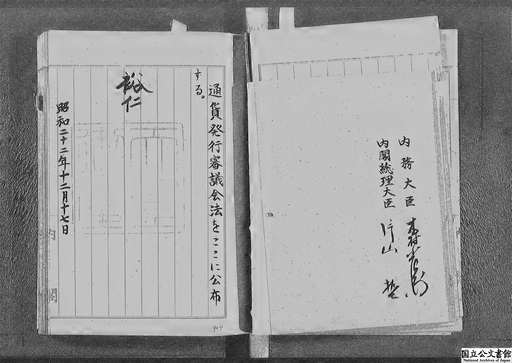 内務大臣 木村小左衛門
内閣総理大臣 片山 哲
通貨発行審議会法をここに公布
する。
裕仁
昭和二十二年十二月十七日
内閣
国立公文書館
National Archives of Japan